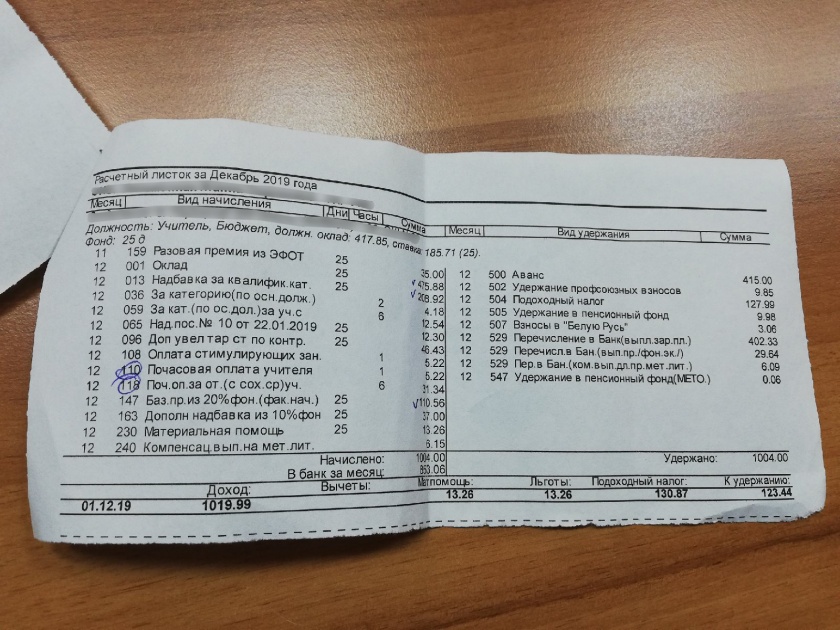 Расчетный листок за Декабрь 2019 года
Месяц Вид начисления Дни Часы Сумма
Должность: Учитель, Бюджет, должн. оклад: 417.85, ставка: 185.71 (25).
Фонд: 25 д
11 159 Разовая премия из ЭФОТ 25 35.00
12 001 Оклад 25 475.88
12 013 Надбавка за квалифик.кат. 25 208.92
12 036 За категорию(по осн.долж.) 2 4.18
12 059 За кат.(по ос.дол.)за уч.с 6 12.54
12 065 Над.пос.№ 10 от 22.01.2019 25 12.30
12 096 Доп увел тар ст по контр. 25 46.43
12 108 Оплата стимулирующих зан. 1 5.22
12 110 Почасовая оплата учителя 1 5.22
12 118 Поч.оп.за от.(с сох.ср)уч. 6 31.34
12 147 Баз.пр.из 20%фон.(фак.нач.) 25 110.56
12 163 Дополн надбавка из 10%фон 25 37.00
12 230 Материальная помощь 25 13.26
12 240 Компенсац.вып.на мет.лит. 6.15
Начислено: 1004.00
В банк за месяц: 853.06
Месяц Вид удержания Сумма
12 500 Аванс 415.00
12 502 Удержание профсоюзных взносов 9.85
12 504 Подоходный налог 127.99
12 505 Удержание в пенсионный фонд 9.98
12 507 Взносы в "Белую Русь" 3.06
12 529 Перечисление в Банк(выпл.зар.пл.) 402.33
12 529 Перечисл.в Бан.(вып.пр./фон.эк./) 29.64
12 529 Пер.в Бан.(ком.вып.дл.пр.мет.лит.) 6.09
12 547 Удержание в пенсионный фонд(МЕТО.) 0.06
Удержано: 1004.00
Доход: Вычеты: Матпомощь: Льготы: Подоходный налог: К удержанию:
01.12.19 1019.99 13.26 13.26 130.87 123.44